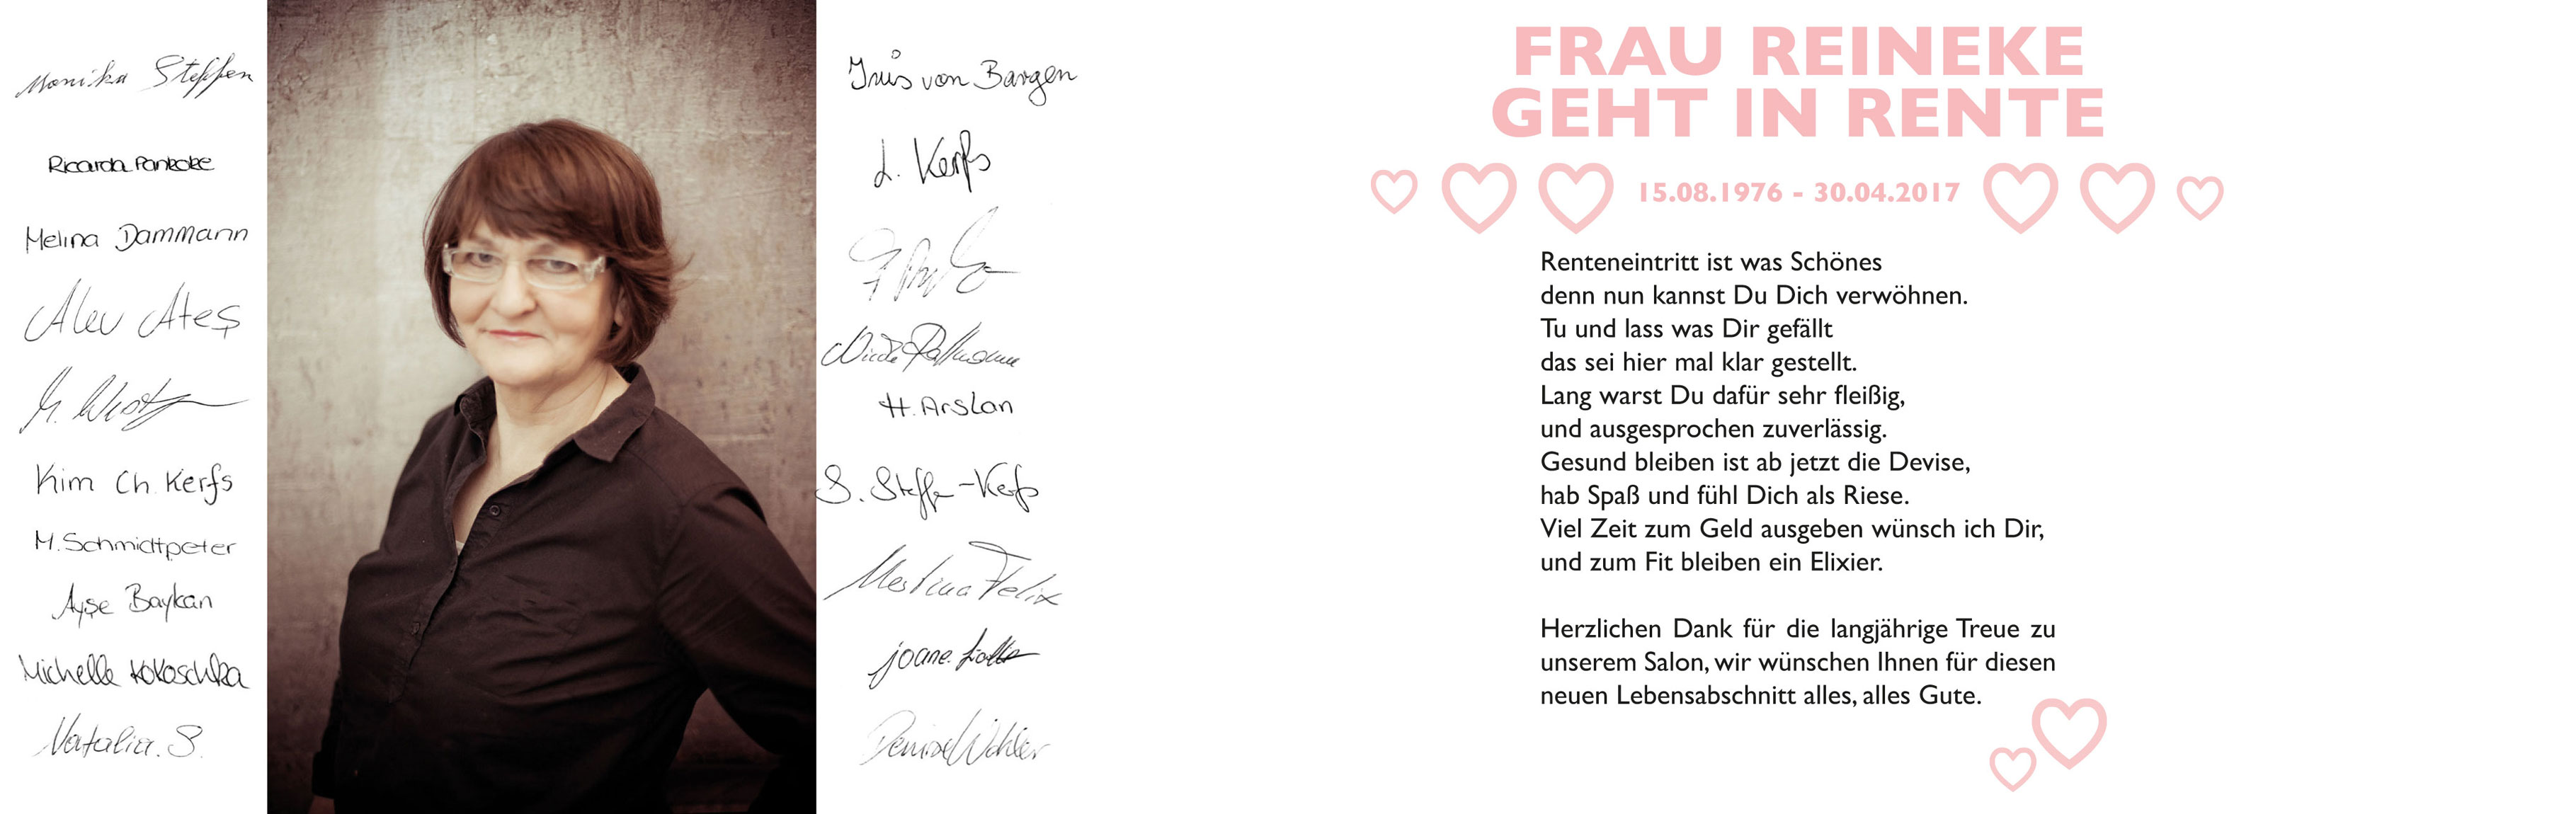 Monika Steffen
Ricarda Panecke
Melina Dammann
Alev Ateş
Kim Ch. Kerfs
M. Schmidtpeter
Ayşe Baykan
Michelle Kokoschka
Natalia. S.
Iris von Bargen
L. Kerfs
H. Arslan
S. Steffen-Kerfs
Martina Felix
joane.
Denise Wohler
FRAU REINEKE
GEHT IN RENTE
15.08.1976 - 30.04.2017
Renteneintritt ist was Schönes
denn nun kannst Du Dich verwöhnen.
Tu und lass was Dir gefällt
das sei hier mal klar gestellt.
Lang warst Du dafür sehr fleißig,
und ausgesprochen zuverlässig.
Gesund bleiben ist ab jetzt die Devise,
hab Spaß und fühl Dich als Riese.
Viel Zeit zum Geld ausgeben wünsch ich Dir,
und zum Fit bleiben ein Elixier.
Herzlichen Dank für die langjährige Treue zu
unserem Salon, wir wünschen Ihnen für diesen
neuen Lebensabschnitt alles, alles Gute.